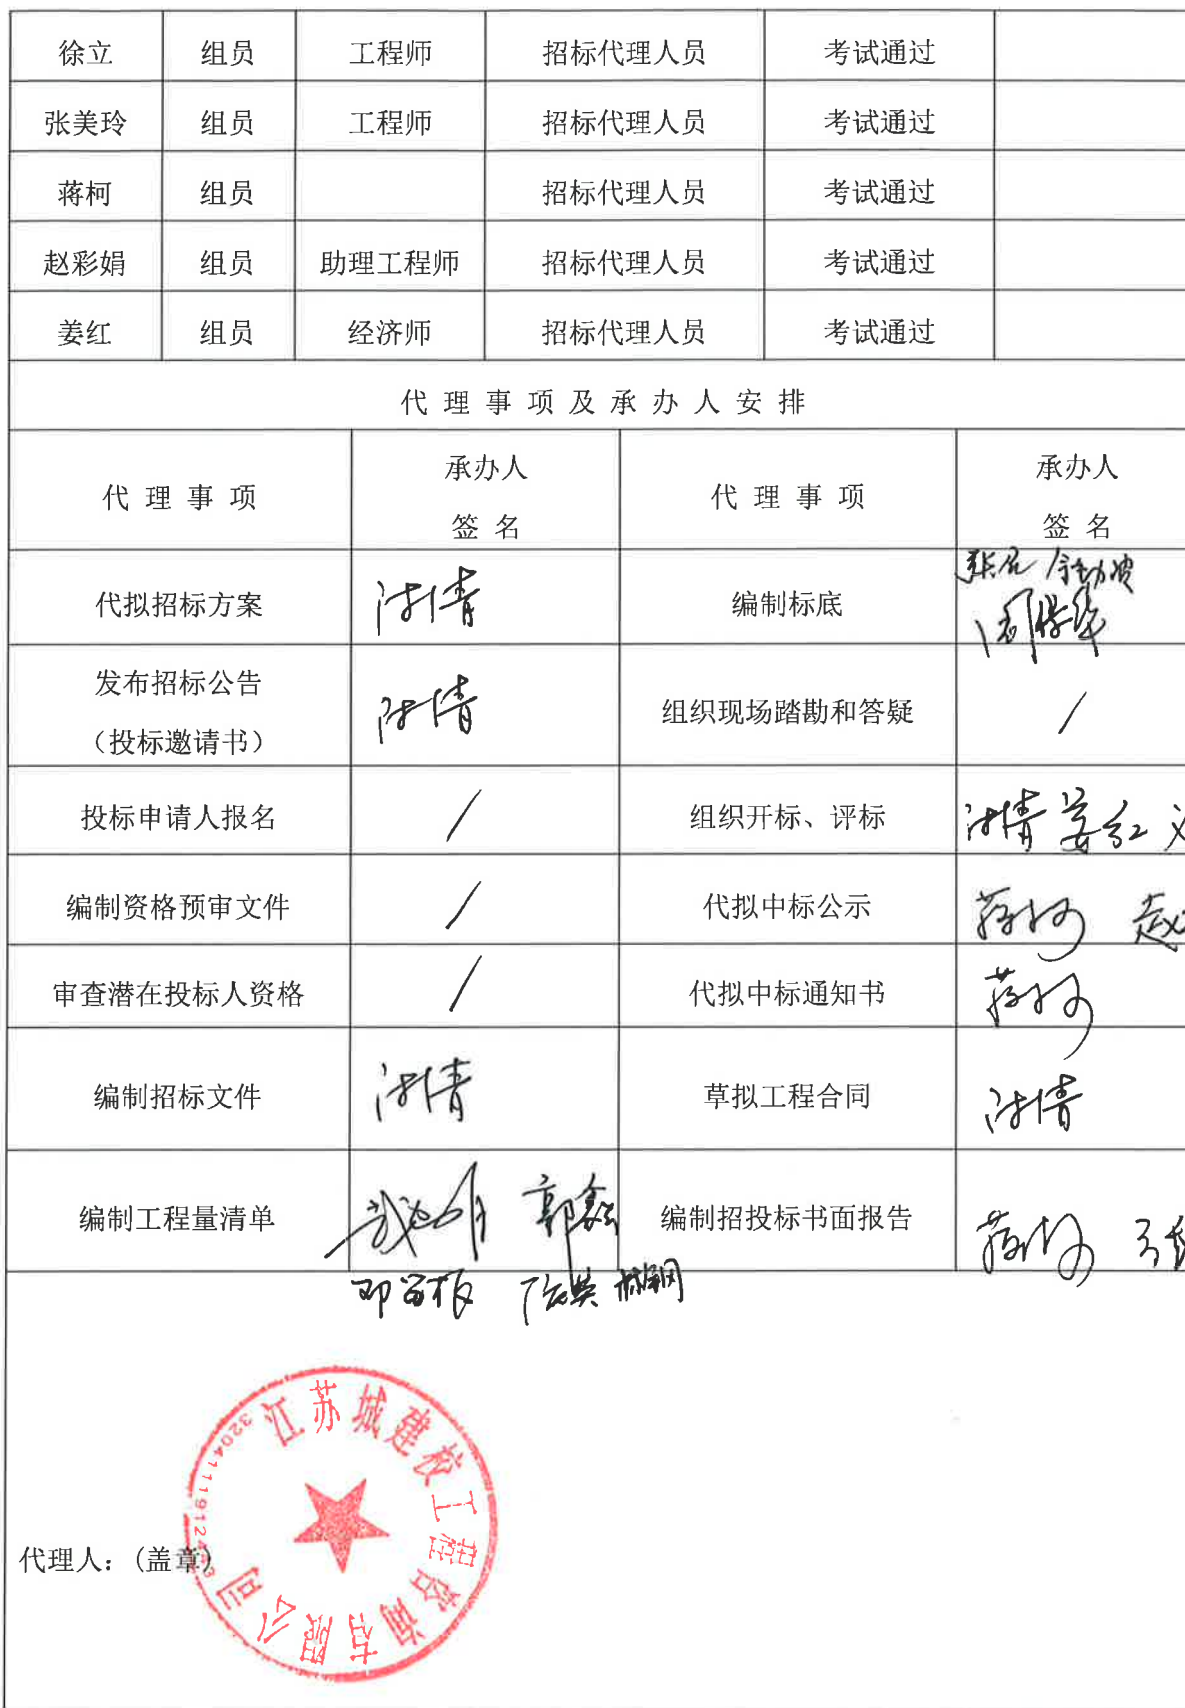 徐立 组员 工程师 招标代理人员 考试通过
张美玲 组员 工程师 招标代理人员 考试通过
蒋柯 组员 招标代理人员 考试通过
赵彩娟 组员 助理工程师 招标代理人员 考试通过
姜红 组员 经济师 招标代理人员 考试通过
代理事项及承办人安排
代理事项 承办人 代理事项 承办人
签名 签名
代拟招标方案 编制标底
发布招标公告 组织现场踏勘和答疑 /
（投标邀请书）
投标申请人报名 / 组织开标、评标 姜红
编制资格预审文件 / 代拟中标公示 蒋柯 赵
审查潜在投标人资格 / 代拟中标通知书 蒋柯
编制招标文件 草拟工程合同
编制工程量清单 郭磊 编制招投标书面报告 蒋柯
江苏城建校工程咨询有限公司
代理人：(盖章)